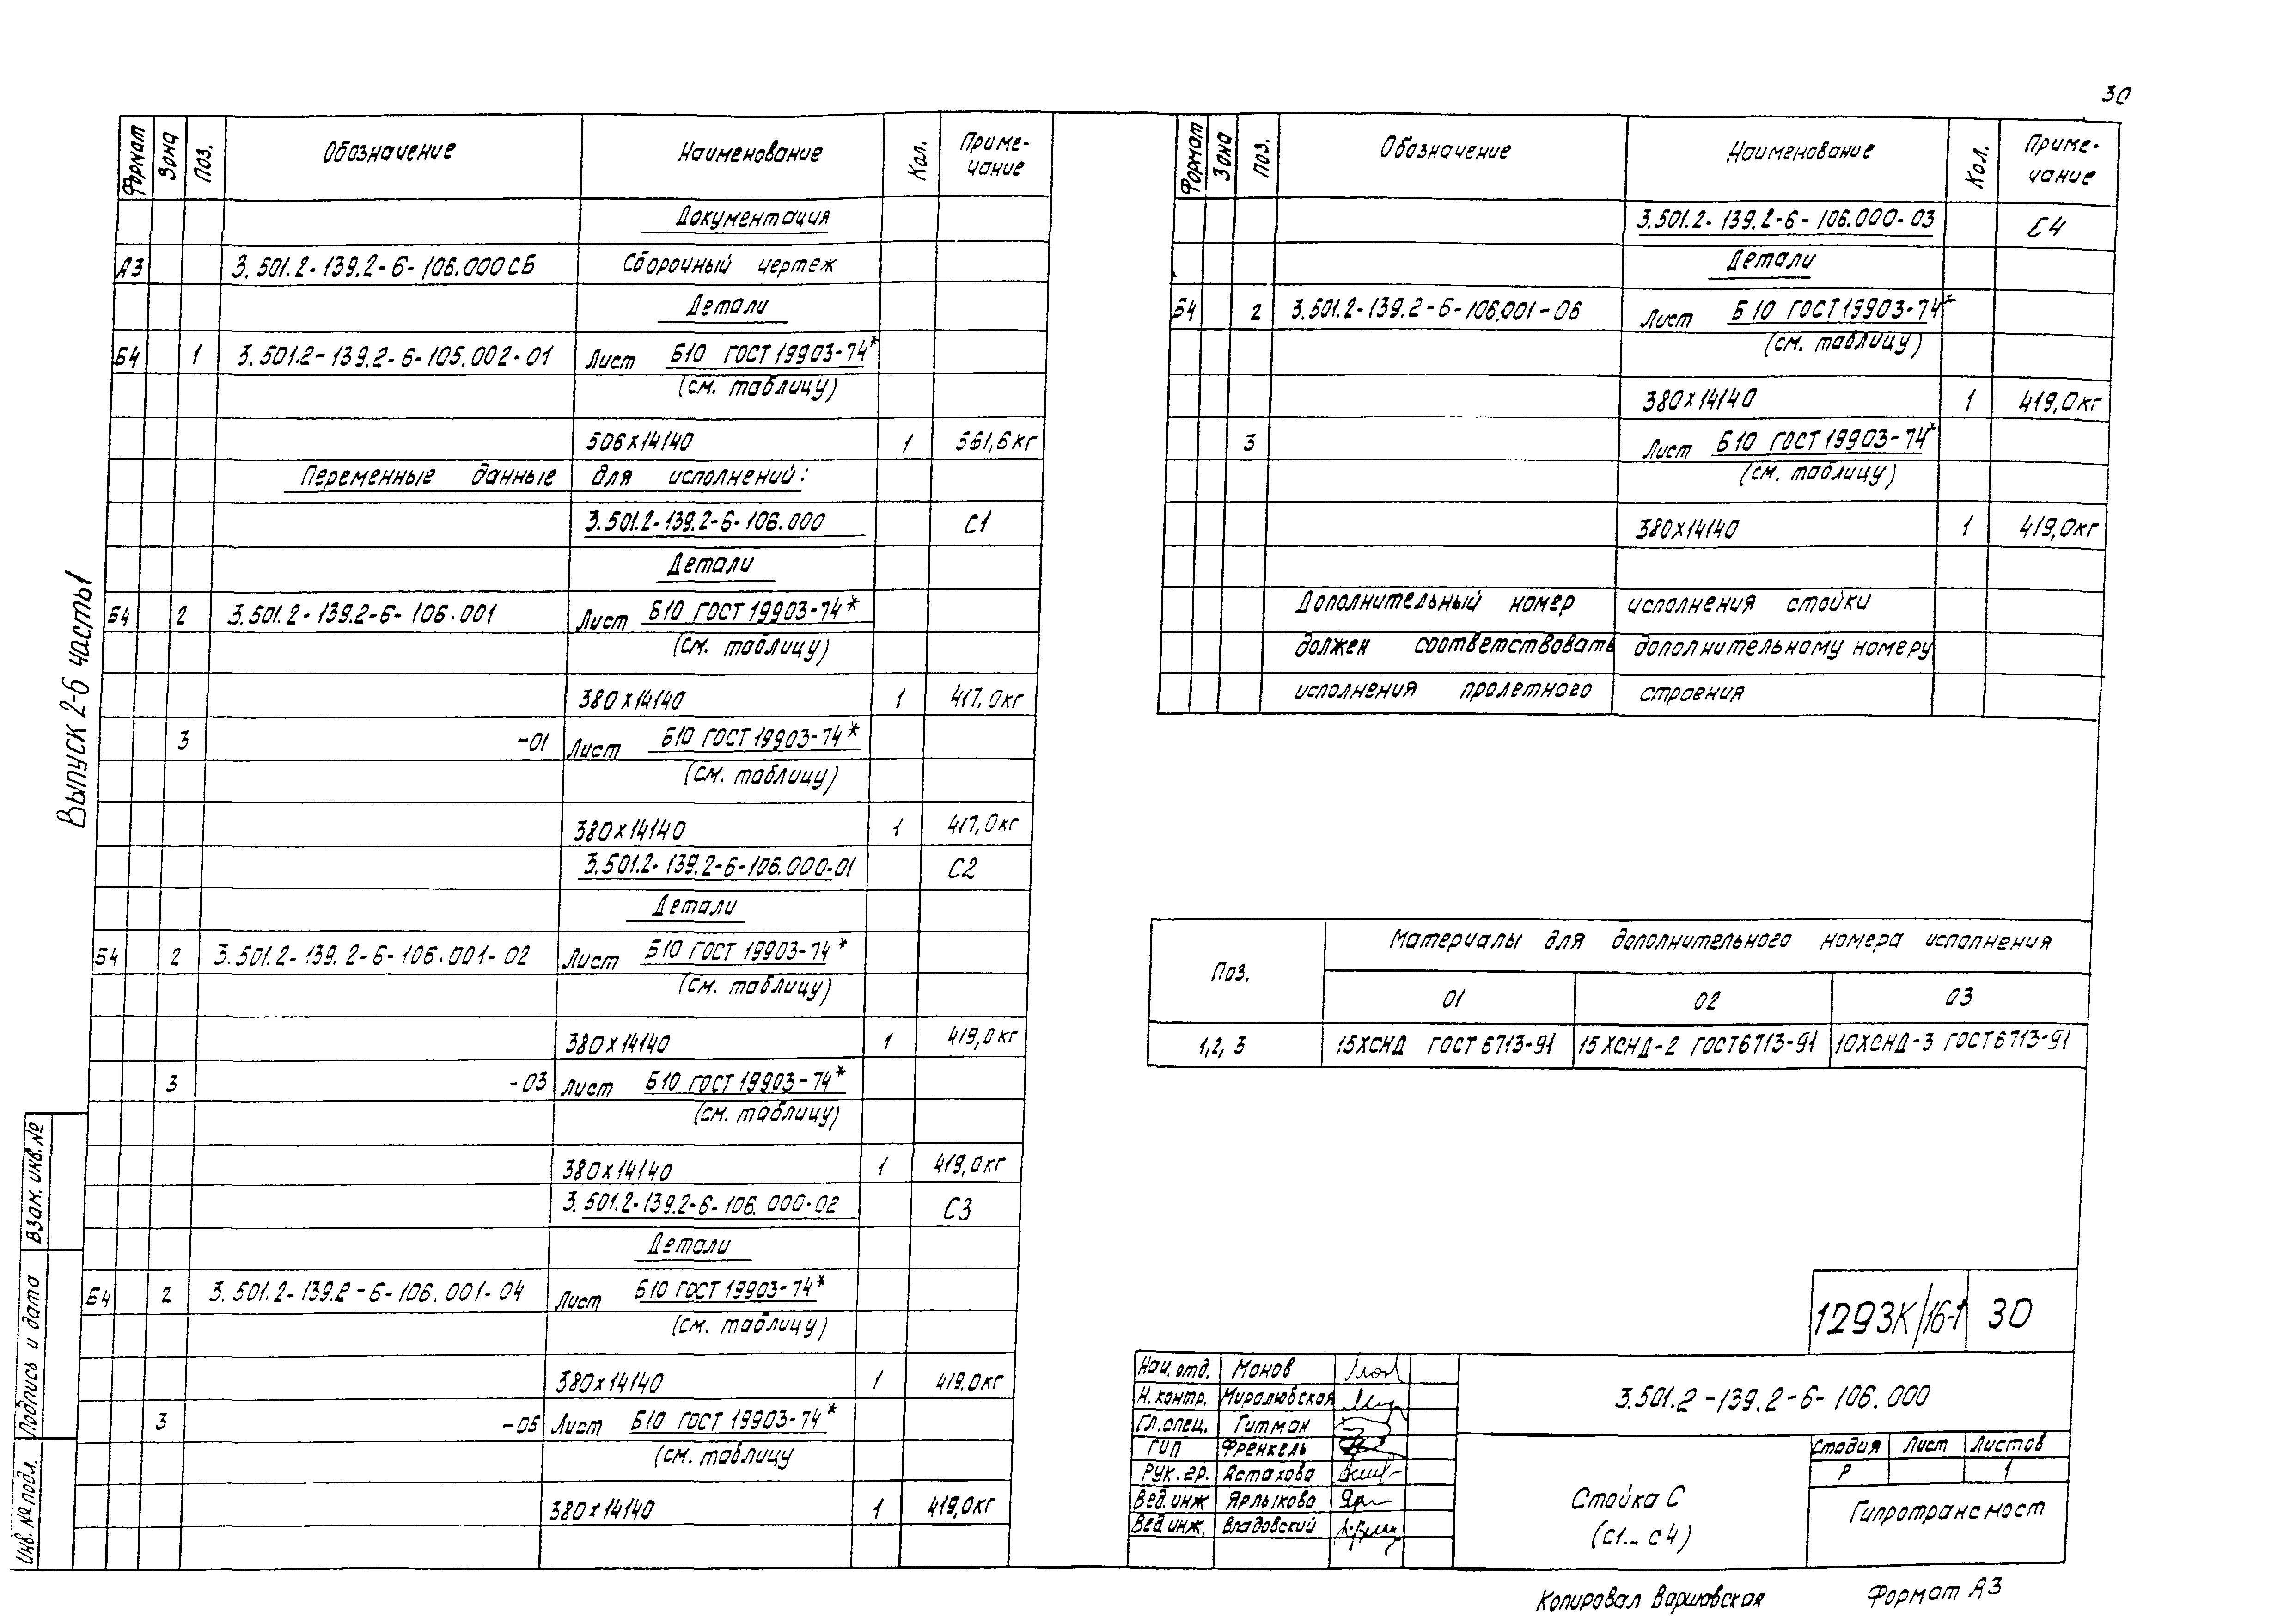 30
Формат Зона Поз. Обозначение Наименование Кол. Приме-
чание
Документация
А3 3.501.2-139.2-6-106.000СБ Сборочный чертеж
Детали
Б4 1 3.501.2-139.2-6-105.002-01 Лист Б10 ГОСТ 19903-74*
(см. таблицу)
506х14140 1 561,6кг
Переменные данные для исполнений:
3.501.2-139.2-6-106.000 С1
Детали
Б4 2 3.501.2-139.2-6-106.001 Лист Б10 ГОСТ 19903-74*
(см. таблицу)
380х14140 1 417,0кг
3 -01 Лист Б10 ГОСТ 19903-74*
(см. таблицу)
380х14140 1 417,0кг
3.501.2-139.2-6-106.000-01 С2
Детали
Б4 2 3.501.2-139.2-6-106.001-02 Лист Б10 ГОСТ 19903-74*
(см. таблицу)
380х14140 1 419,0кг
3 -03 Лист Б10 ГОСТ 19903-74*
(см. таблицу)
380х14140 1 419,0кг
3.501.2-139.2-6-106.000-02 С3
Детали
Б4 2 3.501.2-139.2-6-106.001-04 Лист Б10 ГОСТ 19903-74*
(см. таблицу)
380х14140 1 419,0кг
3 -05 Лист Б10 ГОСТ 19903-74*
(см. таблицу
380х14140 1 419,0кг
Выпуск 2-6 часть1
Взам. инв. №
Подпись и дата
Инв. № подл.
Формат Зона Поз. Обозначение Наименование Кол. Приме-
чание
3.501.2-139.2-6-106.000-03 С4
Детали
Б4 2 3.501.2-139.2-6-106.001-06 Лист Б10 ГОСТ 19903-74*
(см. таблицу)
380х14140 1 419,0кг
3 Лист Б10 ГОСТ 19903-74*
(см. таблицу)
380х14140 1 419,0кг
Дополнительный номер исполнения стойки
должен соответствовать дополнительному номеру
исполнения пролетного строения
Поз. Материалы для дополнительного номера исполнения
01 02 03
1,2,3 15ХСНД ГОСТ 6713-91 15ХСНД-2 ГОСТ6713-91 10ХСНД-3 ГОСТ6713-91
1293К/16-1 30
Нач. отд. Монов
Н. контр. Миролюбская
Гл. спец. Гитман
ГИП Френкель
Рук. гр. Астахова
Вед. инж Ярлыкова
Вед. инж. Владовский
3.501.2-139.2-6-106.000
Стойка С
(С1...С4)
Стадия Лист Листов
Р 1
Гипротрансмост
Копировал Варшавская Формат А3